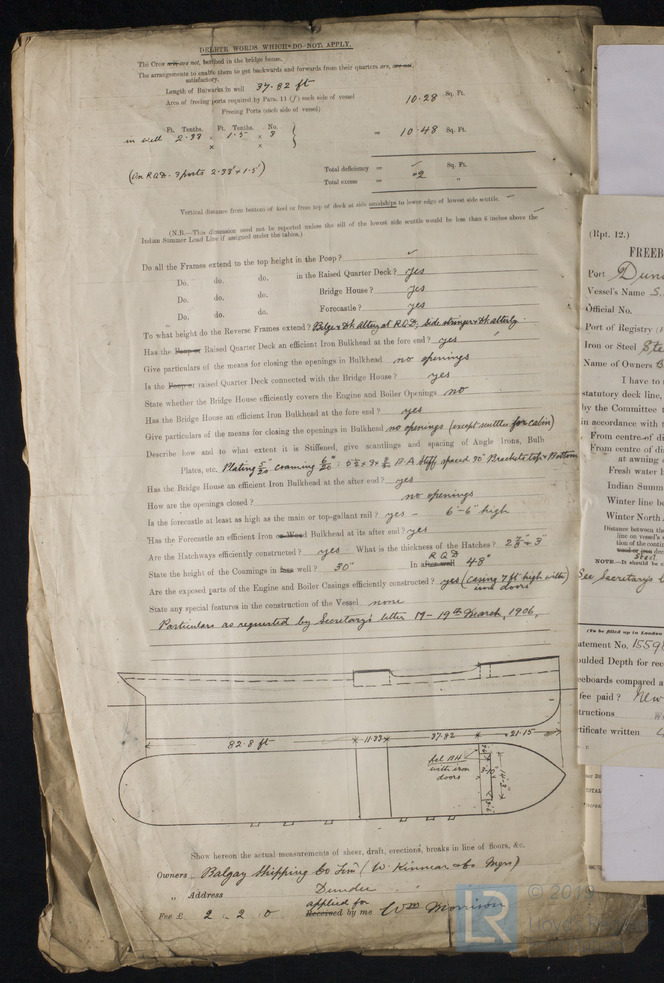 DELETE WORDS WHICH DO NOT APPLY.
The Crew are, are not, berthed in the bridge house.
The arrangements to enable them to get backwards and forwards from their quarters are, are not,
satisfactory.
Length of Bulwarks in well 37.82 ft
Area of freeing ports required by Para. 11 (f) each side of vessel 10.28 Sq. Ft.
Freeing Ports (each side of vessel)
Ft. Tenths. Ft. Tenths. No.
in well 2.33 × 1.5 × 3 = 10.48 Sq. Ft.
× ×
(On R.Q.D. 3 ports 2.33' × 1.5')
Total deficiency = Sq. Ft.
Total excess = .2 "
Vertical distance from bottom of keel or from top of deck at side amidships to lower edge of lowest side scuttle.
(N.B.—This dimension need not be reported unless the sill of the lowest side scuttle would be less than 6 inches above the
Indian Summer Load Line if assigned under the tables.)
Do all the Frames extend to the top height in the Poop?
Do. do. do. in the Raised Quarter Deck? yes
Do. do. do. Bridge House? yes
Do. do. do. Forecastle? yes
To what height do the Reverse Frames extend? Bilge & Dk altely at R.Q.D, side stringer & Dk altertly.
Has the Poop or Raised Quarter Deck an efficient Iron Bulkhead at the fore end? yes
Give particulars of the means for closing the openings in Bulkhead no openings
Is the Poop or raised Quarter Deck connected with the Bridge House? yes
State whether the Bridge House efficiently covers the Engine and Boiler Openings no
Has the Bridge House an efficient Iron Bulkhead at the fore end? yes
Give particulars of the means for closing the openings in Bulkhead no openings (except scuttles for cabin)
Describe how and to what extent it is Stiffened, give scantlings and spacing of Angle Irons, Bulb
Plates, etc. Plating coaming B.A. Stiffs spaced 30" Brackets top & Bottom
Has the Bridge House an efficient Iron Bulkhead at the after end? yes
How are the openings closed? no openings
Is the forecastle at least as high as the main or top-gallant rail? yes - 6'-6" high
Has the Forecastle an efficient Iron or Wood Bulkhead at its after end? yes
Are the Hatchways efficiently constructed? yes What is the thickness of the Hatches? 2½" & 3"
State the height of the Coamings in fore well? 30" In after well R Q D 48"
Are the exposed parts of the Engine and Boiler Casings efficiently constructed? yes (casing 7ft high with
iron doors)
State any special features in the construction of the Vessel none
Particulars as requested by Secretary's letter M - 19th March, 1906,
82.8 ft 11.33 37.82 21.15
with iron
doors
Show hereon the actual measurements of sheer, draft, erections, breaks in line of floors, &c.
Owners Balgay Shipping Co Lim (W. Kinnear & Co Mgrs)
" Address Dundee
applied for
Fee £ 2 . 2 . 0 Received by me Wm Morrison
(Rpt. 12.)
FREEB
Port Dun
Vessel's Name S.
Official No.
Port of Registry
Iron or Steel Ste
Name of Owners B
I have to
statutory deck line,
by the Committee
in accordance with
From centre of di
From centre of dis
at awning
Fresh water
Indian Summ
Winter line be
Winter North
Distance between the
line on vessel's
tion of the contin
wood or iron dec
Steel
NOTE.—It should be
See Secretary's l
(To be filled up in London
atement No. 1559
oulded Depth for rec
eeboards compared a
fee paid? New
tructions
tificate written
LR
© 2019
Lloyd's Re